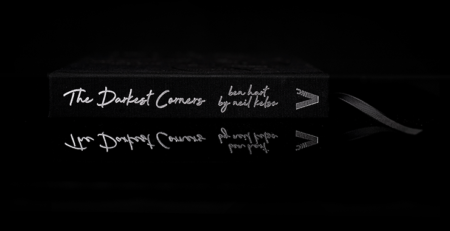 The Darkest Corners
ben hart
by neil kelso